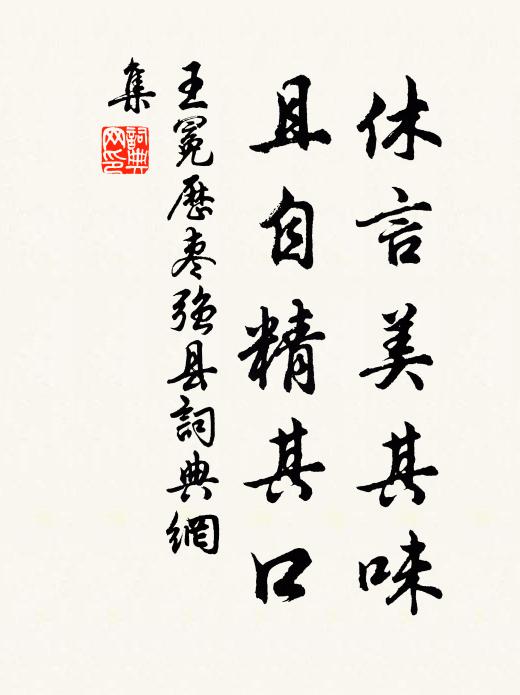 休言美其味
且自精其口
王冕歷枣强县詞典網
集
詞典网印